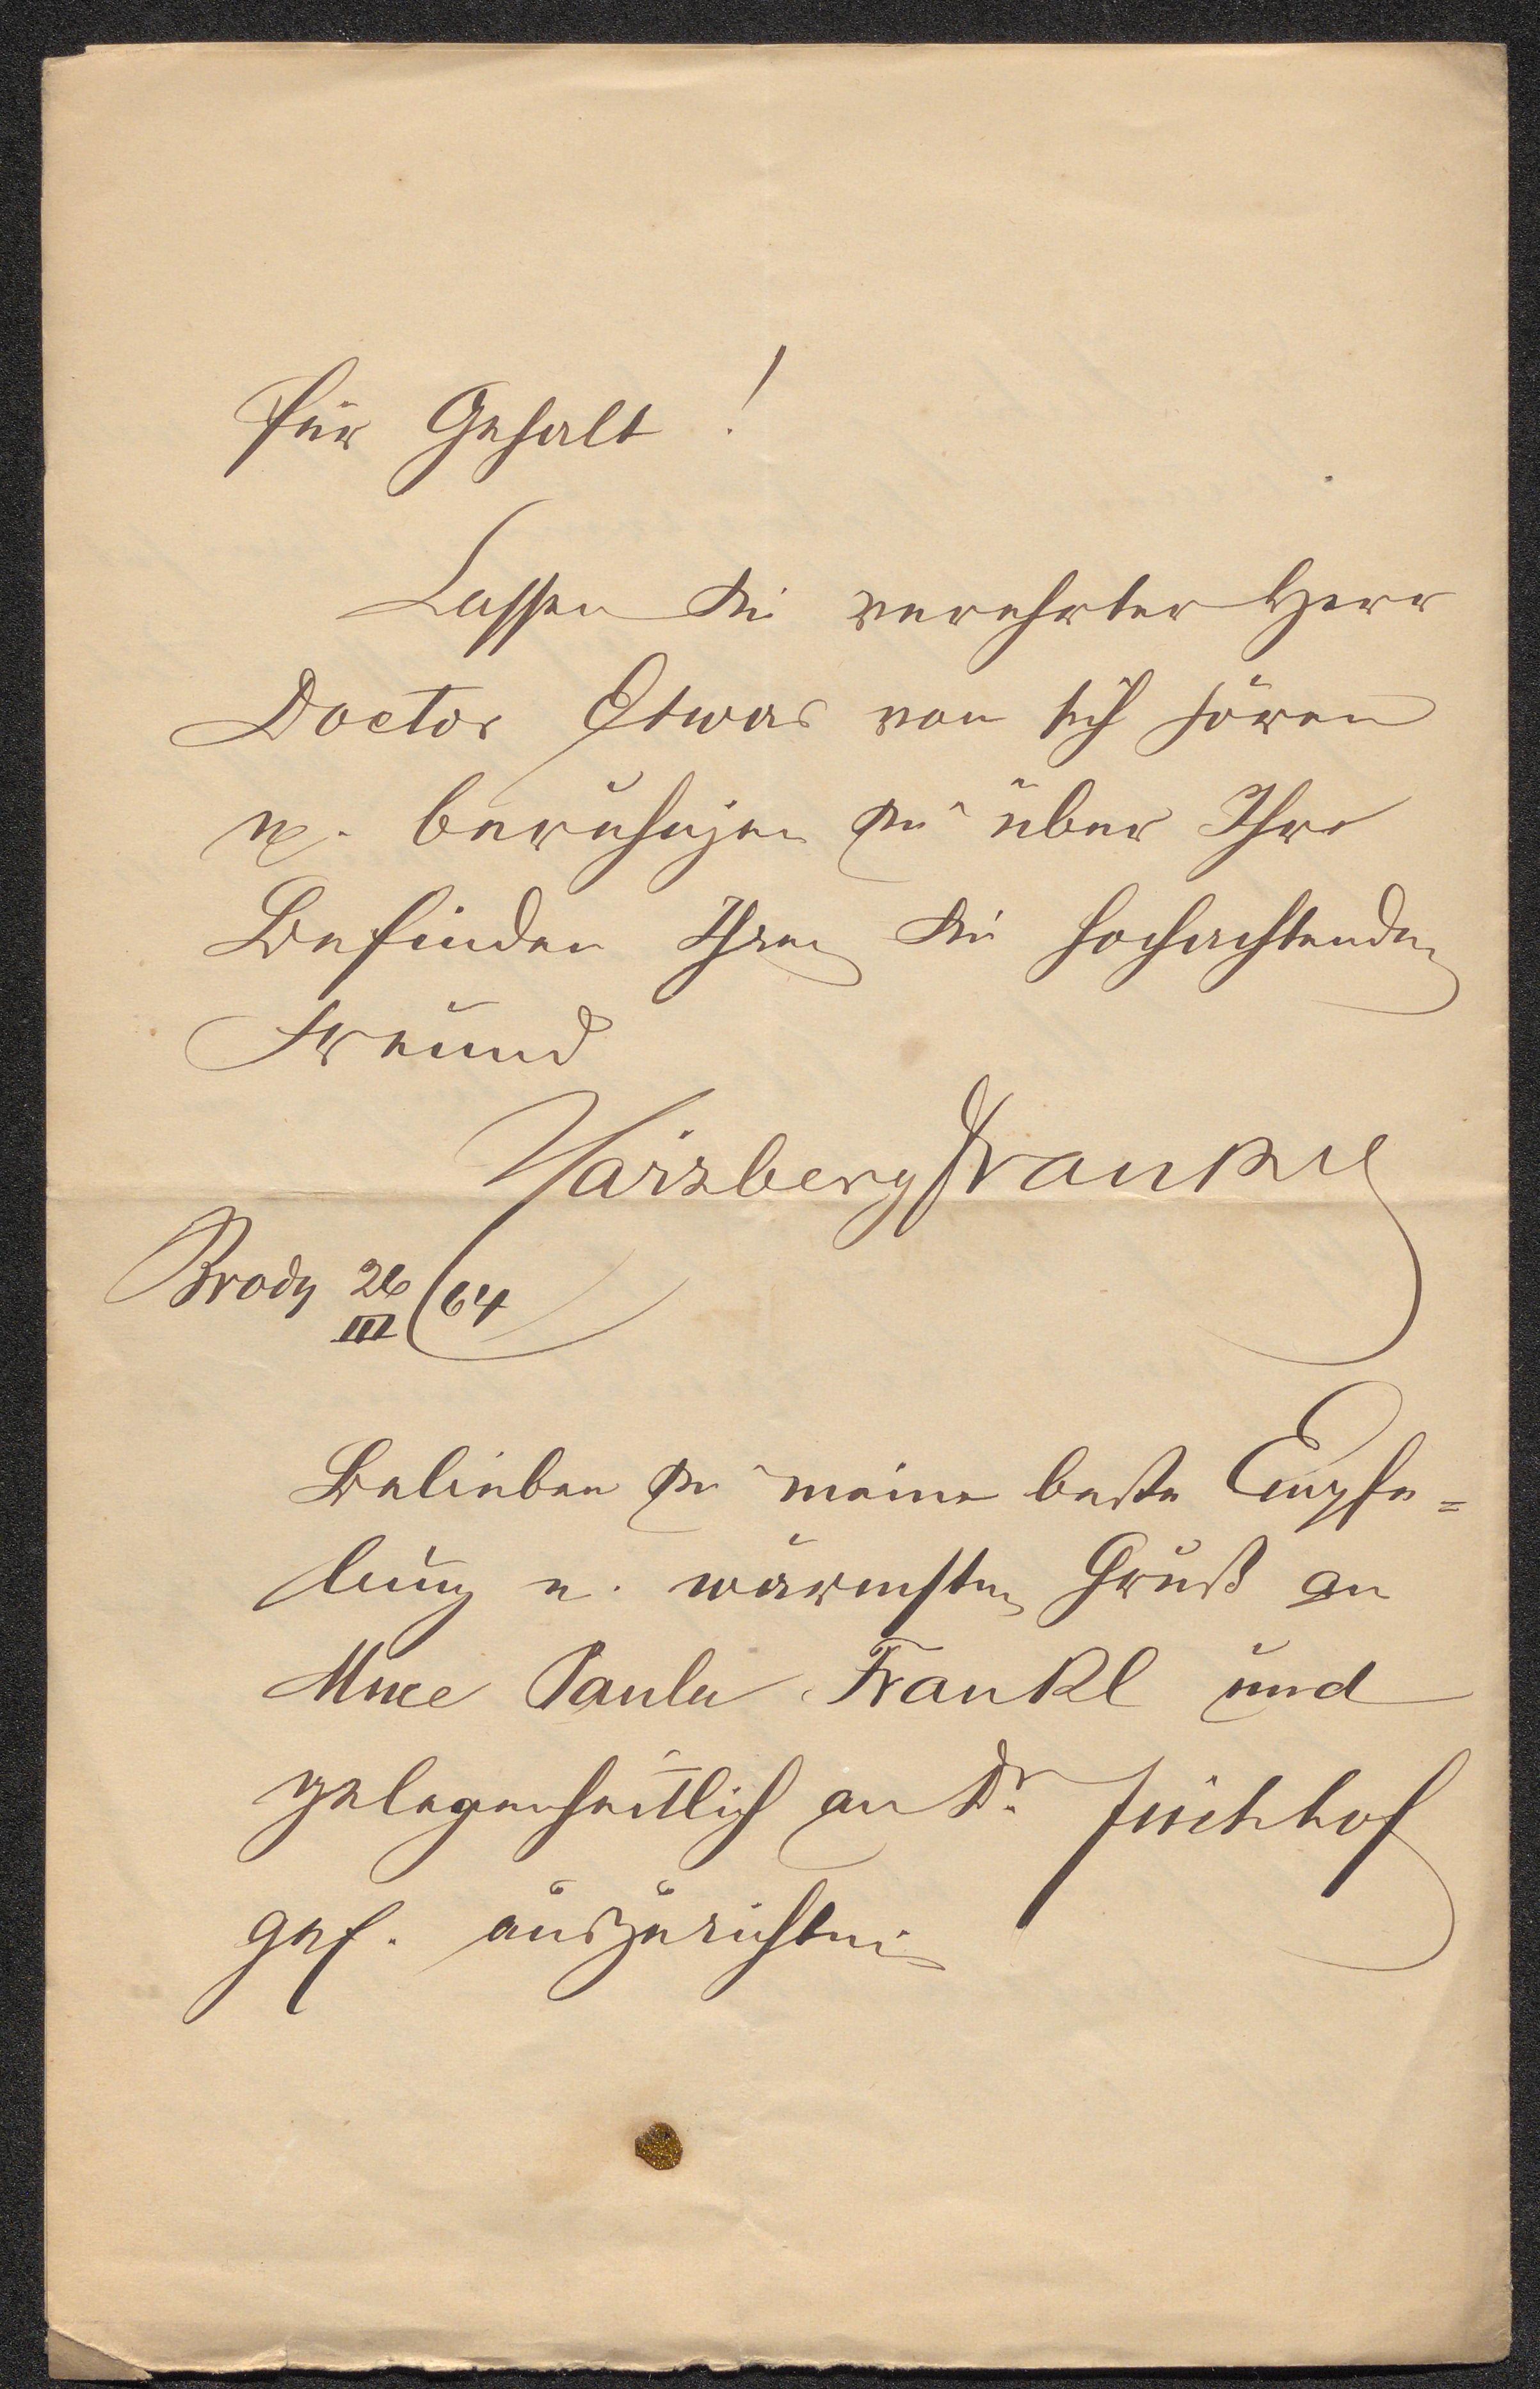 für Gehalt!
Lassen Sie verehrter Herr
Doctor Etwas von sich hören
u. beruhigen Sie über Ihr
Befinden Ihren Sie hochachtenden
Freund
Herzberg Fränkel
Brody 26/III 64
Belieben Sie meine beste Empfe=
lung u. wärmsten Gruß an
Mme Paula Frankl und
gelegenheitlich an Dr. Fischhof
gef. auszurichten